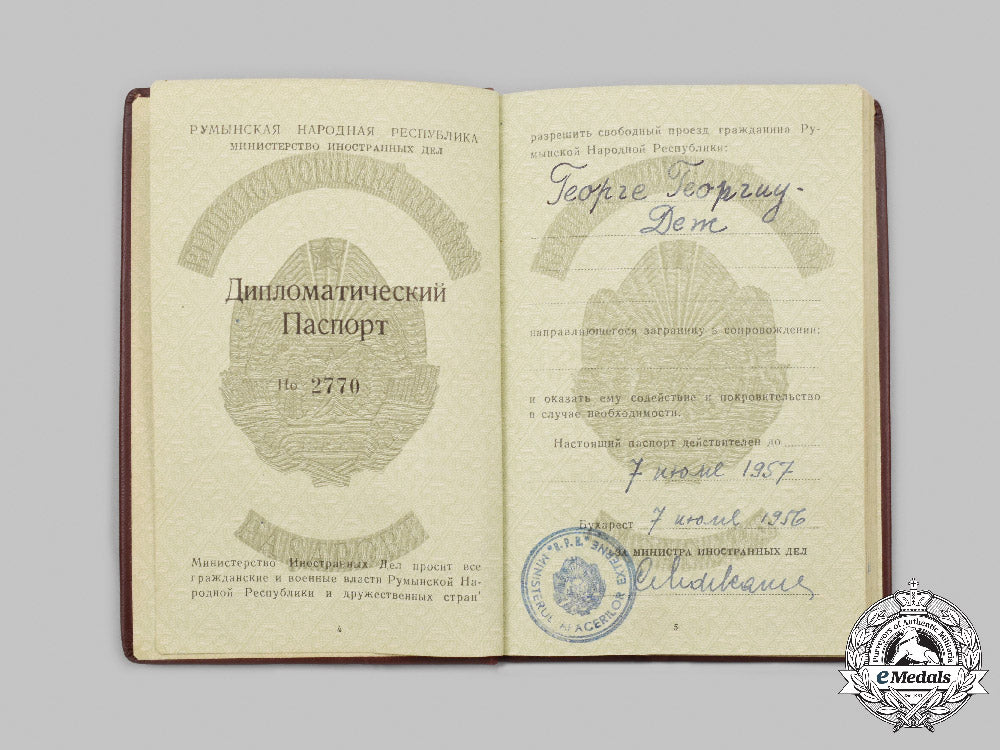 РУМЫНСКАЯ НАРОДНАЯ РЕСПУБЛИКА
МИНИСТЕРСТВО ИНОСТРАННЫХ ДЕЛ
Дипломатический
Паспорт
No 2770
Министерство Иностранных Дел просит все
гражданские и военные власти Румынской На-
родной Республики и дружественных стран'
4
разрешить свободный проезд гражданина Ру-
мынской Народной Республики:
Георге Георгиу-
Деж
направляющегося заграницу в сопровождении:
и оказать ему содействие и покровительство
в случае необходимости.
Настоящий паспорт действителен до
7 июля 1957
Бухарест 7 июля 1956
ЗА МИНИСТРА ИНОСТРАННЫХ ДЕЛ
R.P.R. MINISTERUL AFACERILOR EXTERNE
5
Purveyors of Authentic Militaria
eMedals